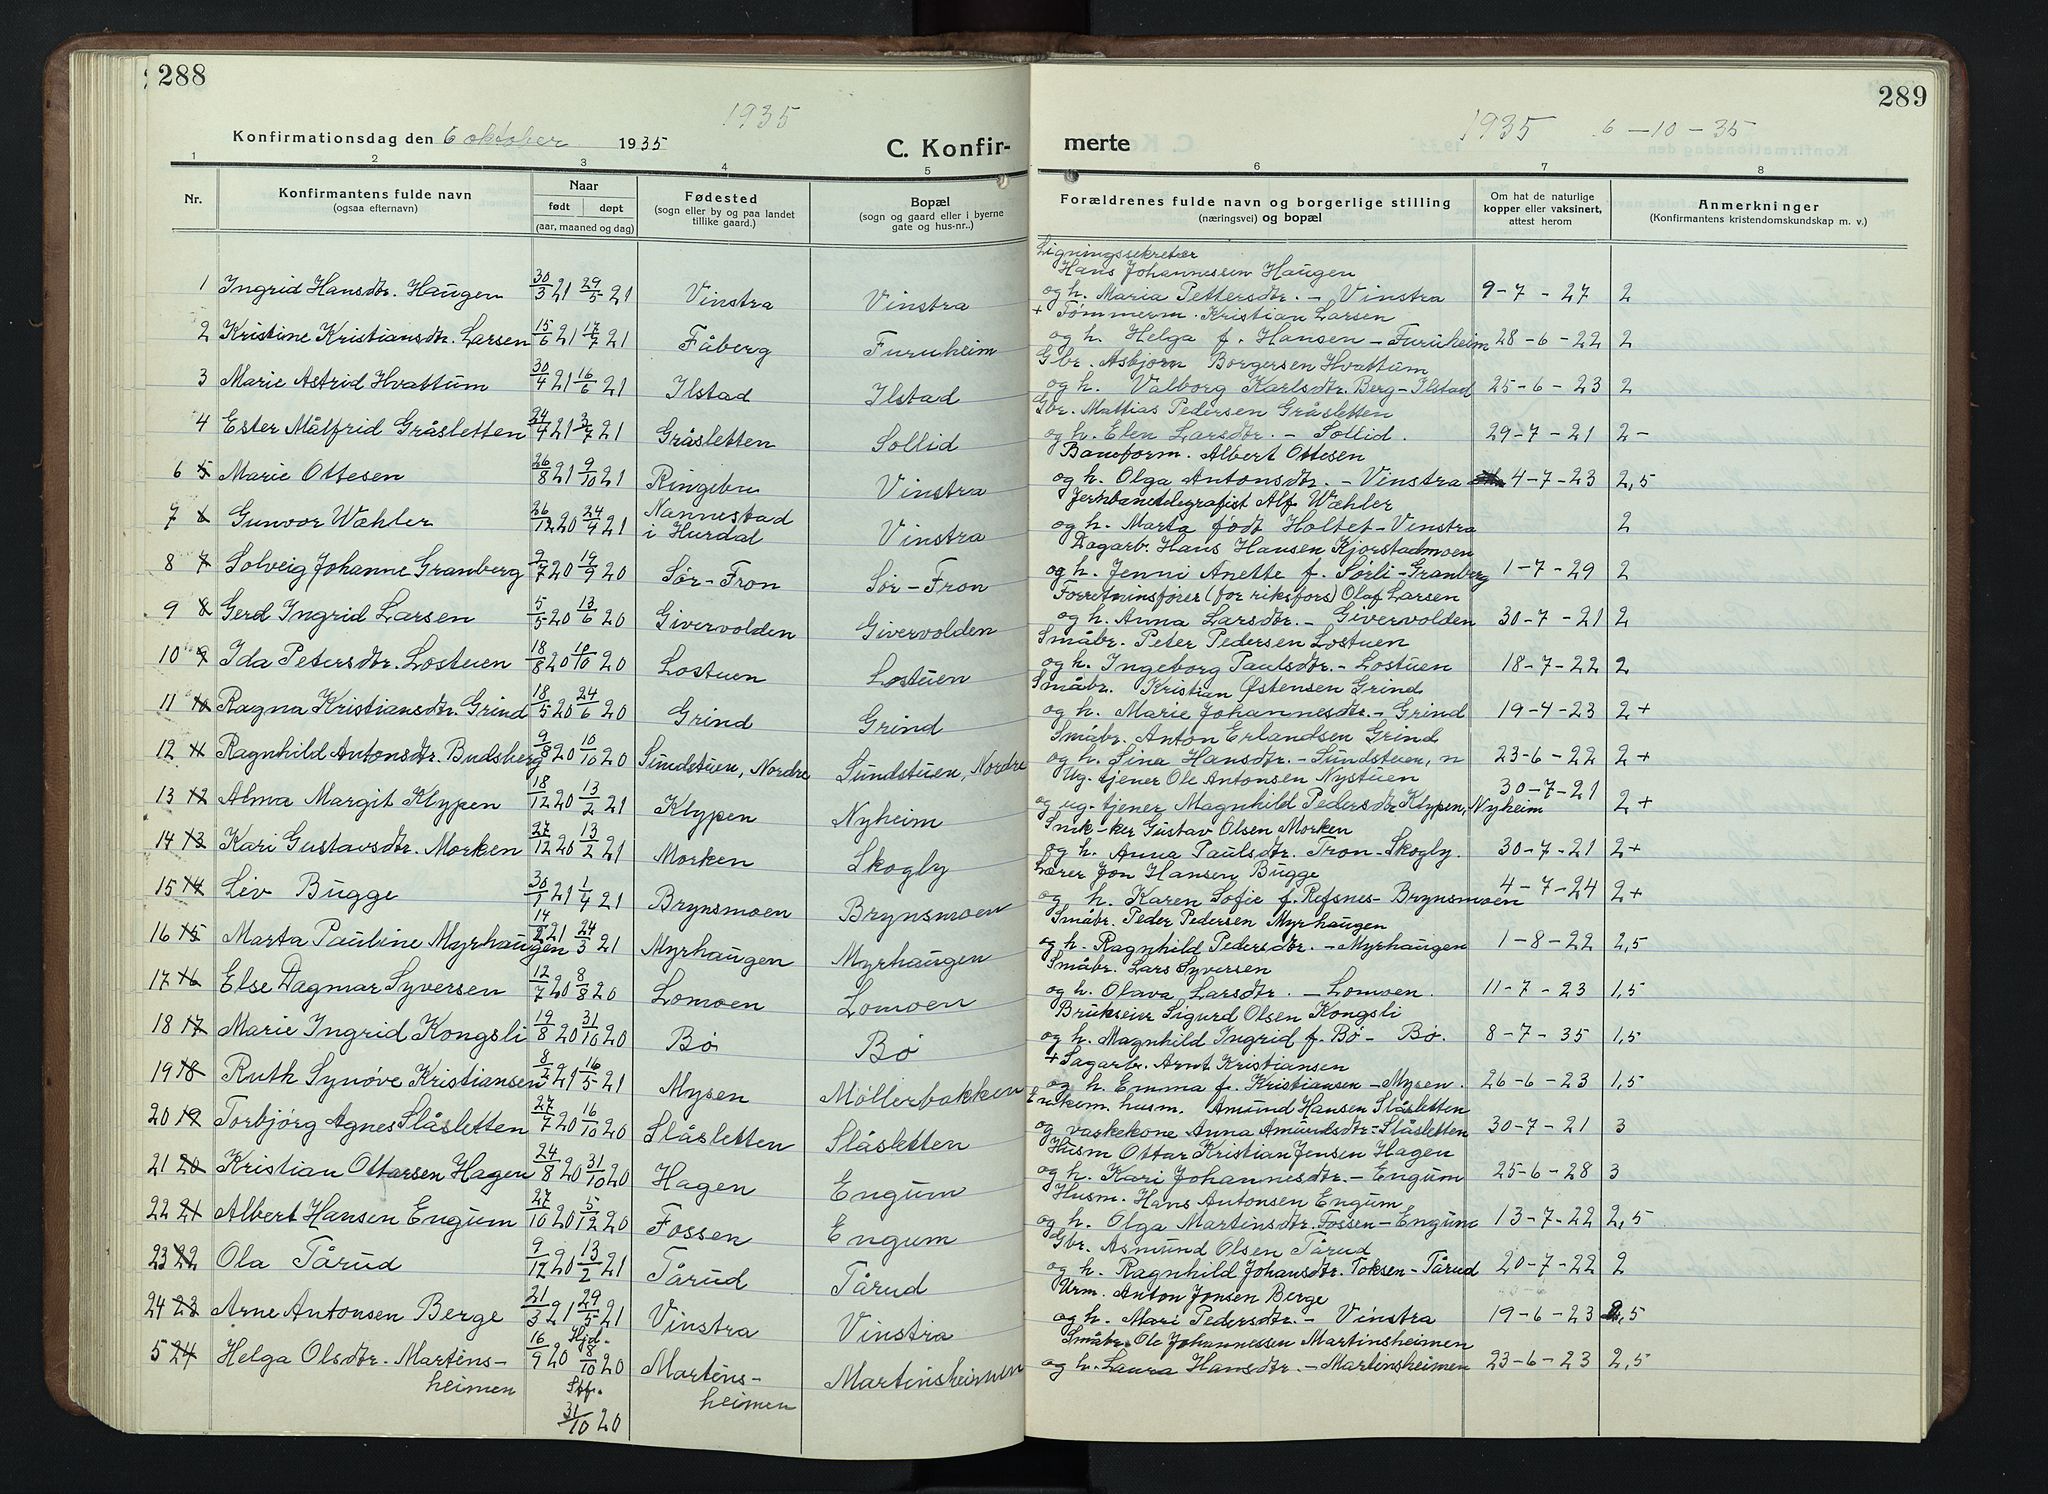 288
1935
Konfirmationsdag den 6 oktober 1935
C. Konfir-
1 2 3 4 5
Nr.
Konfirmantens fulde navn
(ogsaa efternavn)
Naar
født døpt
(aar, maaned og dag)
Fødested
(sogn eller by og paa landet
tillike gaard.)
Bopæl
(sogn og gaard eller i byerne
gate og hus-nr..)
1 Ingrid Hansdtr. Haugen 30/3 21 29/5 21 Vinstra Vinstra
2 Kristine Kristiansdtr. Larsen 15/6 21 17/7 21 Fåberg Furuheim
3 Marie Astrid Hvattum 30/4 21 16/6 21 Ilstad Ilstad
4 Ester Målfrid Gråsletten 24/4 21 3/7 21 Gråsletten Sollid
6 5 Marie Ottesen 26/8 21 9/10 21 Ringebu Vinstra
7 6 Gunvor Wæhler 26/12 20 24/4 21 Nannestad i Hurdal Vinstra
8 7 Solveig Johanne Granberg 9/7 20 19/9 20 Sør-Fron Sør-Fron
9 8 Gerd Ingrid Larsen 5/5 20 13/6 20 Givervolden Givervolden
10 9 Ida Petersdtr. Lostuen 18/8 20 10/10 20 Lostuen Lostuen
11 10 Ragna Kristiansdtr. Grind 18/5 20 24/6 20 Grind Grind
12 11 Ragnhild Antonsdtr. Budsberg 9/8 20 10/10 20 Sundstuen, Nordre Sundstuen, Nordre
13 12 Alma Margit Klypen 18/12 20 13/2 21 Klypen Nyheim
14 13 Kari Gustavsdtr. Morken 27/12 20 13/2 21 Morken Skogly
15 14 Liv Bugge 30/1 21 1/4 21 Brynsmoen Brynsmoen
16 15 Marta Pauline Myrhaugen 14/2 21 24/3 21 Myrhaugen Myrhaugen
17 16 Else Dagmar Syversen 12/7 20 8/8 20 Lomoen Lomoen
18 17 Marie Ingrid Kongsli 19/8 20 31/10 20 Bø Bø
19 18 Ruth Synøve Kristiansen 8/2 21 16/5 21 Mysen Møllerbakken
20 19 Torbjørg Agnes Slåsletten 27/7 20 16/10 20 Slåsletten Slåsletten
21 20 Kristian Ottarsen Hagen 24/8 20 31/10 20 Hagen Engum
22 21 Albert Hansen Engum 27/10 20 5/12 20 Fossen Engum
23 22 Ola Tårud 9/12 20 13/2 21 Tårud Tårud
24 23 Arne Antonsen Berge 21/3 21 29/5 21 Vinstra Vinstra
5 24 Helga Olsdtr. Martins- 16/9 20 Hjd. 8/10 20 Martins- Martinsheimen
heimen Stf. heimen
31/10 20
289
1935 6-10-35
merte
6 7 8
Forældrenes fulde navn og borgerlige stilling
(næringsvei) og bopæl
Om hat de naturlige
kopper eller vaksinert,
attest herom
Anmerkninger
(Konfirmantens kristendomskundskap m. v.)
Ligningssekretær
Hans Johannessen Haugen
og h. Maria Pettersdtr. - Vinstra 9-7-27 2
+ Tømmerm. Kristian Larsen
og h. Helga f. Hansen - Furuheim 28-6-22 2
Gbr. Asbjørn Borgersen Hvattum
og h. Valborg Karlsdtr. Berg - Ilstad 25-6-23 2
Gbr. Mattias Pedersen Gråsletten
og h. Elen Larsdtr. - Sollid. 29-7-21 2-
Baneform. Albert Ottesen
og h. Olga Antonsdtr. - Vinstra 4-7-23 2,5
Jernbanetelegrafist Alf Wæhler
og h. Marta født Holtet - Vinstra 2
Dagarb. Hans Hansen Kjorstadmoen
og h. Jenni Anette f. Sørli - Granberg 1-7-29 2
Forretninsfører (for riksfors) Olaf Larsen
og h. Anna Larsdtr. - Givervolden 30-7-21 2
Småbr. Peter Pedersen Lostuen
og h. Ingeborg Paulsdtr. - Lostuen 18-7-22 2
Småbr. Kristian Østensen Grind
og h. Marie Johannesdtr. - Grind 19-4-23 2+
Småbr. Anton Erlandsen Grind
og h. Sina Hansdtr. - Sundstuen, n 23-6-22 2+
Ug. tjener Ole Antonsen Nystuen
og ug. tjener Magnhild Pedersdtr Klypen, Nyheim 30-7-21 2+
Snik-ker Gustav Olsen Morken
og h. Anna Paulsdtr. Tron - Skogly. 30-7-21 2+
Lærer Jon Hansen Bugge
og h. Karen Sofie f. Refsnes - Brynsmoen 4-7-24 2+
Småbr. Peder Pedersen Myrhaugen
og h. Ragnhild Pedersdtr. - Myrhaugen 1-8-22 2,5
Småbr. Lars Syversen
og h. Olava Larsdtr. - Lomoen. 11-7-23 1,5
Brukseier Sigurd Olsen Kongsli
og h. Magnhild Ingrid f. Bø - Bø. 8-7-35 1,5
+ Sagarb. Arnt Kristiansen
og h. Emma f. Kristiansen - Mysen. 26-6-23 1,5
Enkem. husm. Amund Hansen Slåsletten
og vaskekone Anna Amundsdtr - Slåsletten 30-7-21 3
Husm Ottar Kristian Jensen Hagen
og h. Kari Johannesdtr. - Engum 25-6-28 3
Husm. Hans Antonsen Engum
og h. Olga Martinsdtr. Fossen - Engum 13-7-22 2,5
Gbr. Asmund Olsen Tårud
og h. Ragnhild Johansdtr. Toksen - Tårud 20-7-22 2
Urm. Anton Jonsen Berge
og h. Mari Pedersdtr. - Vinstra 19-6-23 2,5
Småbr. Ole Johannessen Martinsheimen
og h. Laura Hansdtr. - Martinsheimen 23-6-23 2,5